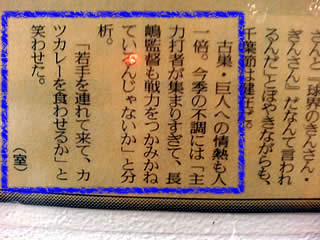 さんと『球界のきんさん・
ぎんさん』だなんて言われ
るんだ」とぼやきながらも、
千葉節は健在だ。
古巣・巨人への情熱も人
一倍。今季の不調には「主
力打者が集まりすぎて、長
嶋監督も戦力をつかみかね
ているんじゃないか」と分
析。
「若手を連れて来て、カ
ツカレーを食わせるか」と
笑わせた。
（室）